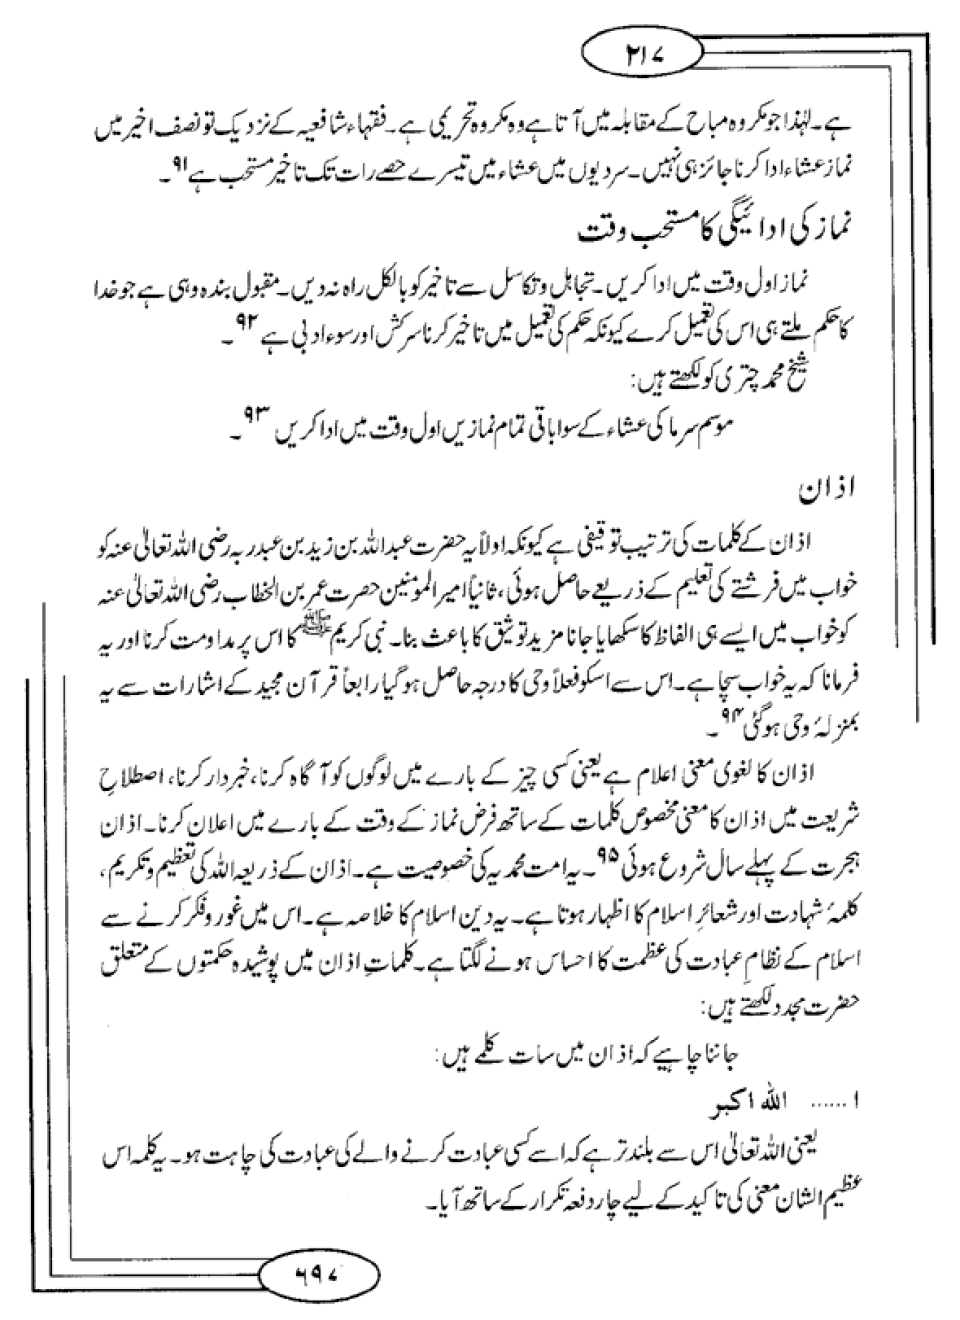 ۲۱۷
ہے۔ لہٰذا جو مکروہ مباح کے مقابلہ میں آتا ہے وہ مکروہ تحریمی ہے۔ فقہاء شافعیہ کے نزدیک تو نصف اخیر میں
نماز عشاء ادا کرنا جائز ہی نہیں۔ سردیوں میں عشاء میں تیسرے حصے رات تک تاخیر مستحب ہے ۹۱۔
نماز کی ادائیگی کا مستحب وقت
نماز اول وقت میں ادا کریں۔ تجاہل و تکاسل سے تاخیر کو بالکل راہ نہ دیں۔ مقبول بندہ وہی ہے جو خدا
کا حکم ملتے ہی اس کی تعمیل کرے کیونکہ حکم کی تعمیل میں تاخیر کرنا سرکش اور سوء ادبی ہے ۹۲۔
شیخ محمد چتری کو لکھتے ہیں:
موسم سرما کی عشاء کے سوا باقی تمام نمازیں اول وقت میں ادا کریں ۹۳۔
اذان
اذان کے کلمات کی ترتیب توقیفی ہے کیونکہ اولاً یہ حضرت عبد اللہ بن زید بن عبدربہ رضی اللہ تعالیٰ عنہ کو
خواب میں فرشتے کی تعلیم کے ذریعے حاصل ہوئی، ثانیاً امیر المومنین حضرت عمر بن الخطاب رضی اللہ تعالیٰ عنہ
کو خواب میں ایسے ہی الفاظ کا سکھایا جانا مزید توثیق کا باعث بنا۔ نبی کریم ﷺ کا اس پر مداومت کرنا اور یہ
فرمانا کہ یہ خواب سچا ہے۔ اس سے اسکو فعلاً وحی کا درجہ حاصل ہو گیا رابعاً قرآن مجید کے اشارات سے یہ
بمنزلۂ وحی ہو گئی ۹۴۔
اذان کا لغوی معنی اعلام ہے یعنی کسی چیز کے بارے میں لوگوں کو آگاہ کرنا، خبردار کرنا، اصطلاحِ
شریعت میں اذان کا معنی مخصوص کلمات کے ساتھ فرض نماز کے وقت کے بارے میں اعلان کرنا۔ اذان
ہجرت کے پہلے سال شروع ہوئی ۹۵۔ یہ امت محمدیہ کی خصوصیت ہے۔ اذان کے ذریعہ اللہ کی تعظیم و تکریم،
کلمۂ شہادت اور شعائرِ اسلام کا اظہار ہوتا ہے۔ یہ دین اسلام کا خلاصہ ہے۔ اس میں غور و فکر کرنے سے
اسلام کے نظامِ عبادت کی عظمت کا احساس ہونے لگتا ہے۔ کلماتِ اذان میں پوشیدہ حکمتوں کے متعلق
حضرت مجدد لکھتے ہیں:
جاننا چاہیے کہ اذان میں سات کلمے ہیں:
۱...... اللہ اکبر
یعنی اللہ تعالیٰ اس سے بلند تر ہے کہ اسے کسی عبادت کرنے والے کی عبادت کی چاہت ہو۔ یہ کلمہ اس
عظیم الشان معنی کی تاکید کے لیے چار دفعہ تکرار کے ساتھ آیا۔
۶۹۷